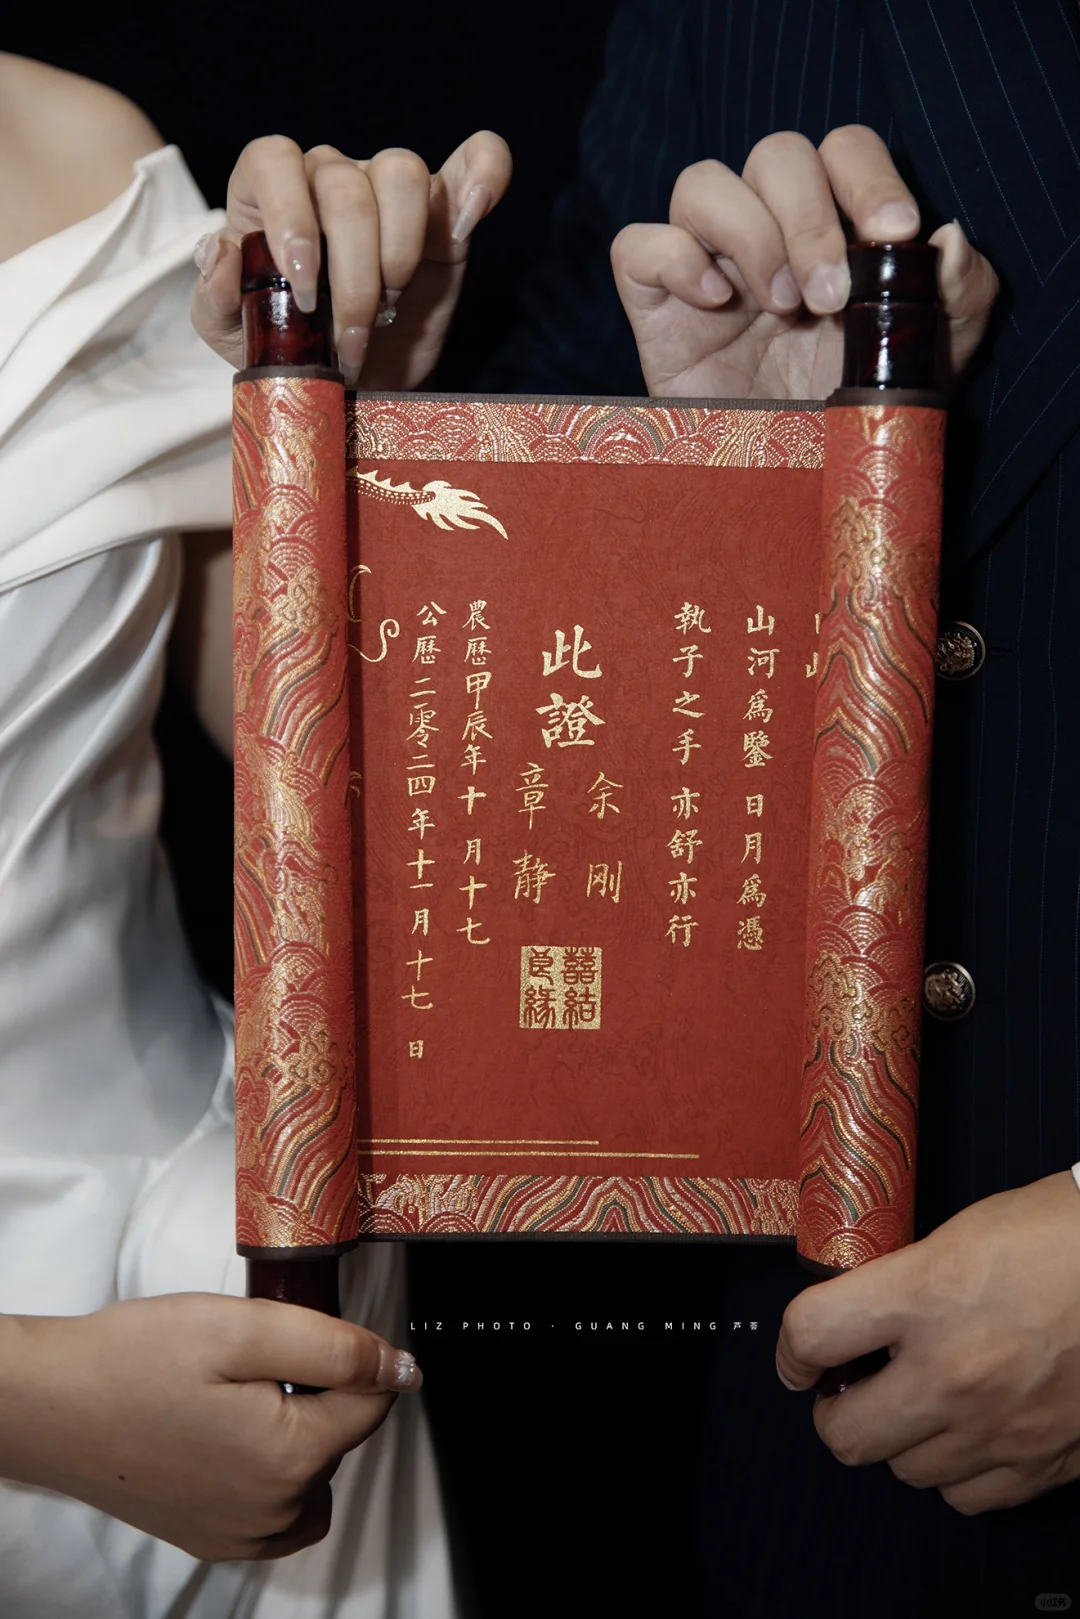 山河為鑒 日月為憑
執子之手 亦舒亦行
此證
余刚
章静
囍結良緣
農歷甲辰年十月十七
公歷二零二四年十一月十七日
LIZ PHOTO · GUANG MING 芦荟
小红书